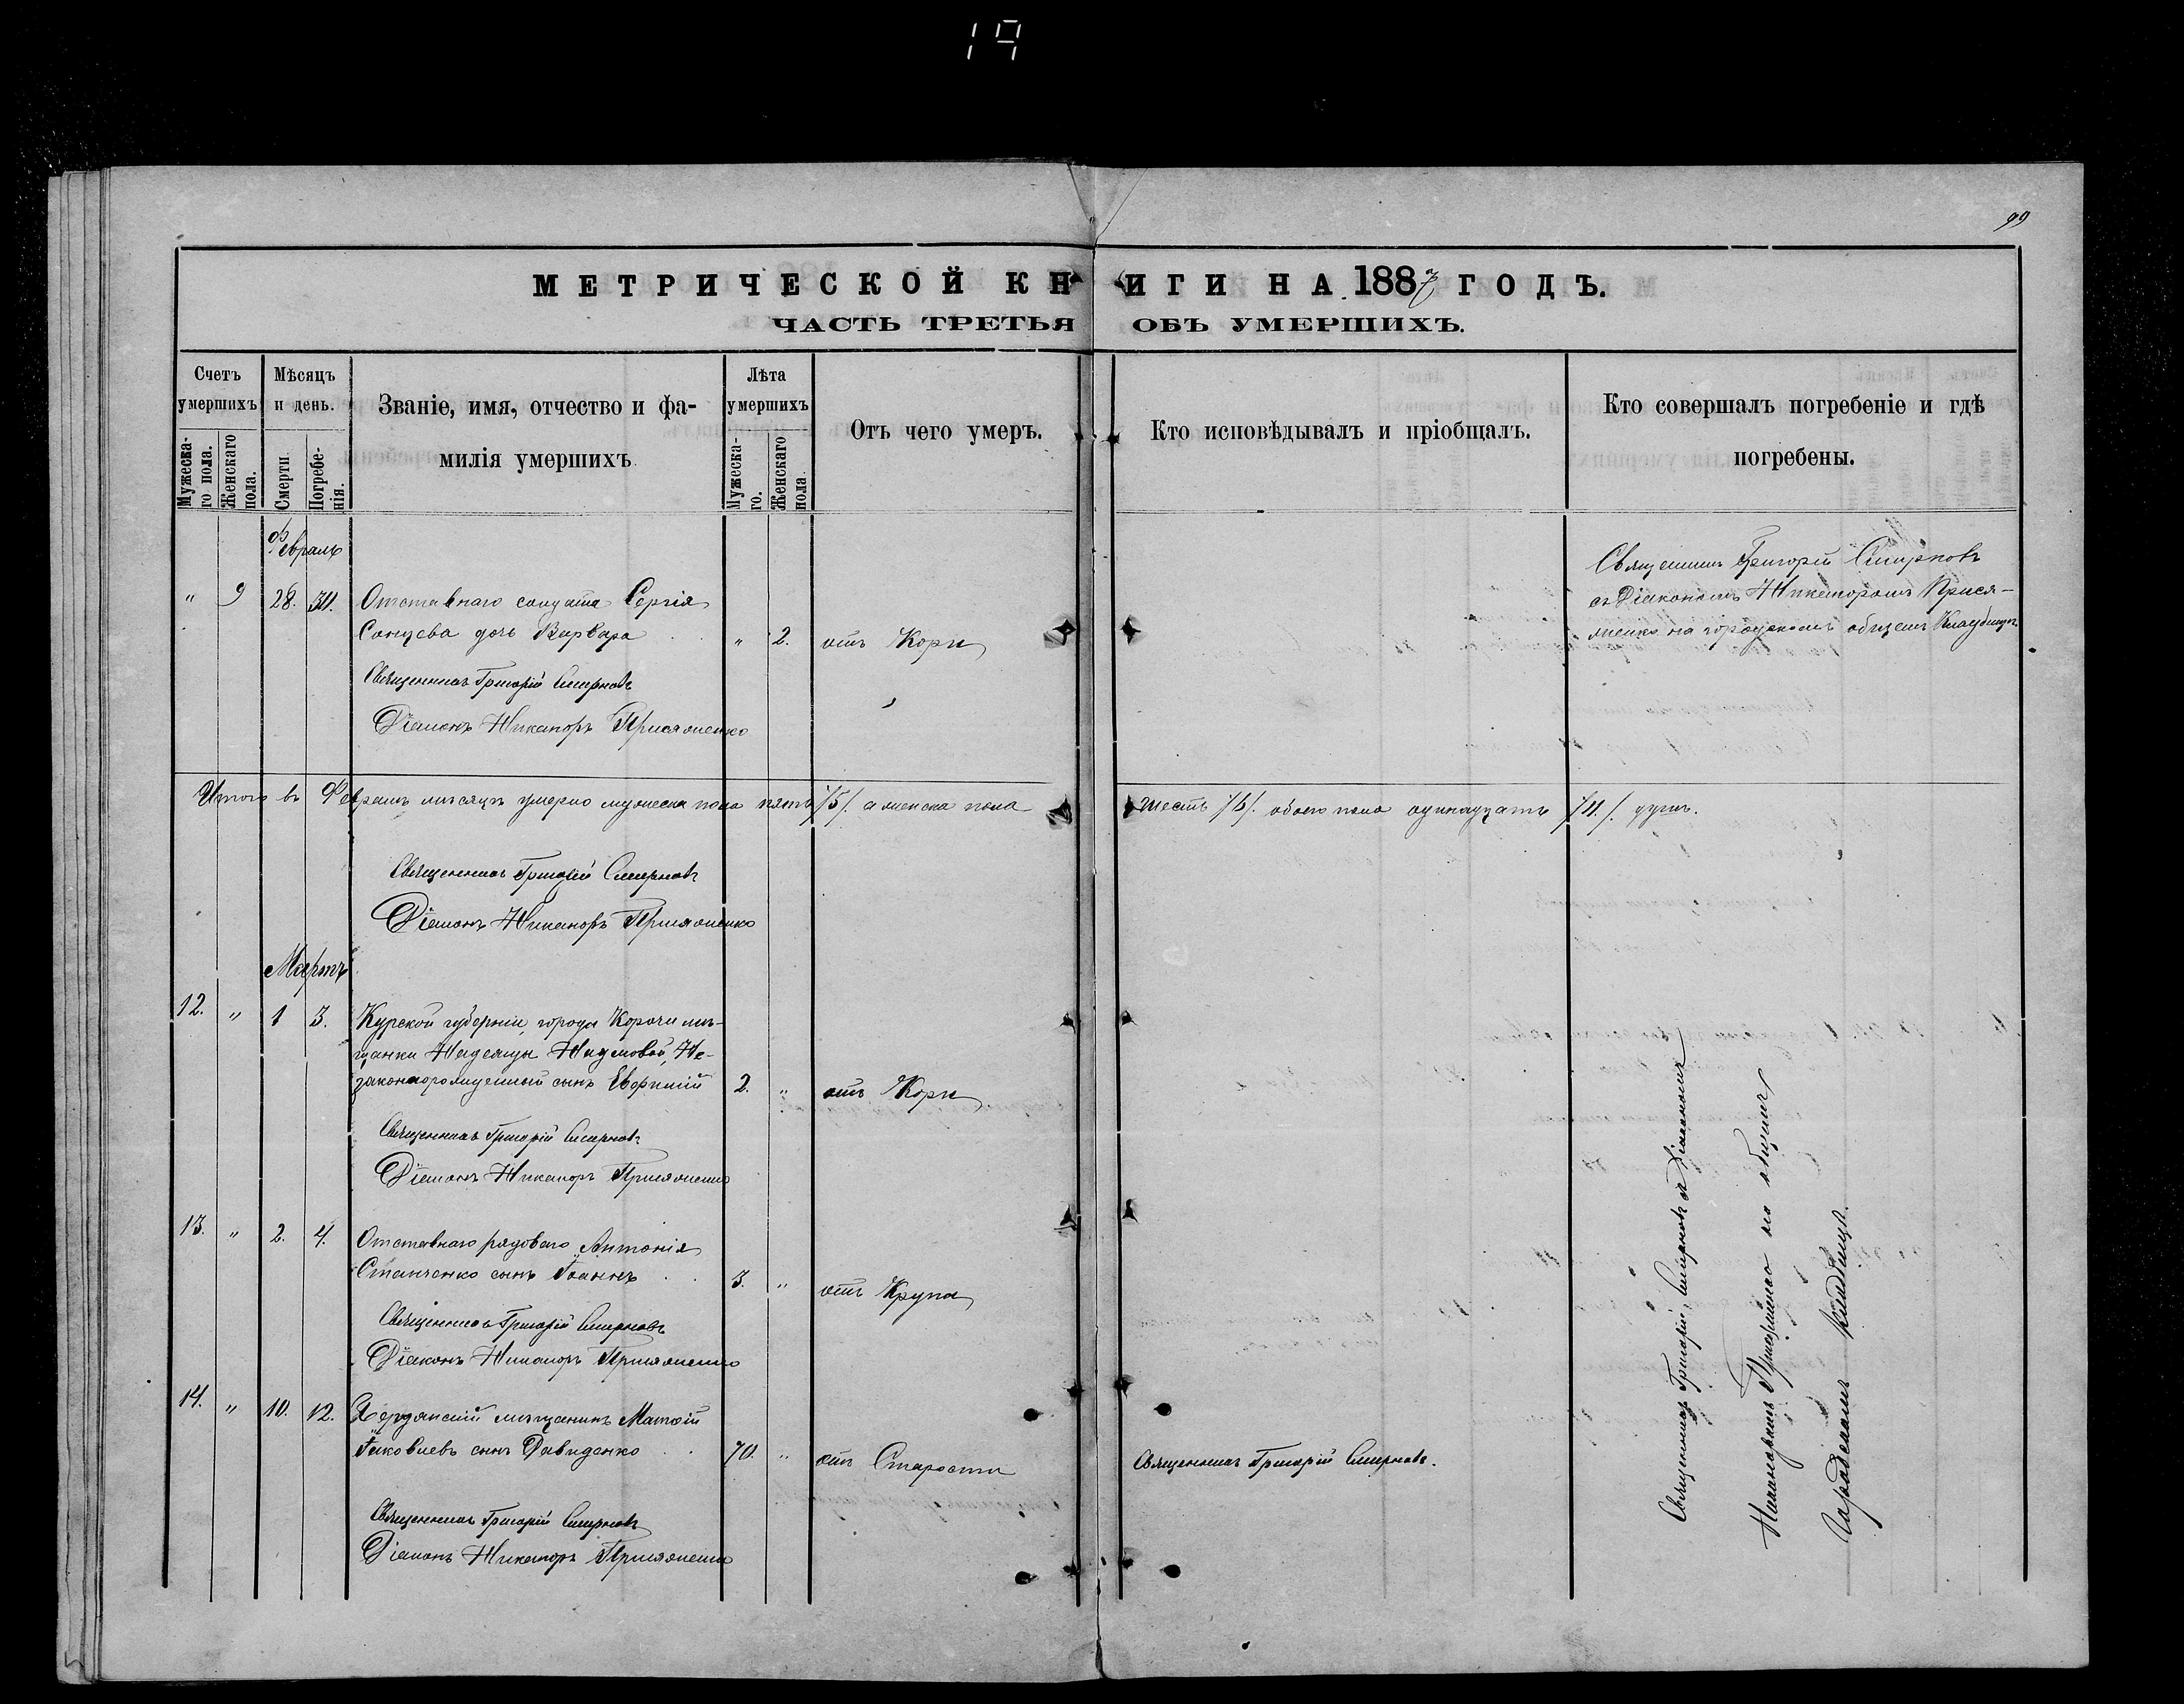 19
99
МЕТРИЧЕСКОЙ КНИГИ НА 1887 ГОДЪ.
ЧАСТЬ ТРЕТЬЯ ОБЪ УМЕРШИХЪ.
Счетъ умершихъ
Мужеска-го пола.
Женскаго пола.
Мѣсяцъ и день.
Смерти
Погребе-нія.
Званіе, имя, отчество и фа-
милія умершихъ
Лѣта умершихъ
Мужеска-го.
Женскаго пола
Отъ чего умеръ.
Кто исповѣдывалъ и пріобщалъ.
Кто совершалъ погребеніе и гдѣ
погребены.
Февраль
" 9 28. Отставнаго солдата Сергія
Сонцева дочь Варвара " 2. отъ Кори
Священникъ Григорій Смирновъ
съ Діакономъ Никаноромъ Прися-
на городскомъ общемъ
Священникъ Григорій Смирновъ
Діаконъ Никаноръ
Итого въ Февралѣ мѣсяцѣ умерло мужеска пола пять /5/. а женска пола шесть /6/. обоего пола одинадцать /11./. душъ.
Священникъ Григорій Смирновъ
Діаконъ Никаноръ
Мартъ
12. " 1 3. Курской губерніи, города Корочи мѣ-
щанки Надежды Не-
законнорожденный сынъ Евфимій 2. " отъ Кори
Священникъ Григорій Смирновъ
Діаконъ Никаноръ
13. " 2. 4. Отставнаго рядоваго Антонія
Степченко сынъ Іоаннъ 3. " отъ Крупа
Священникъ Григорій Смирновъ
Діаконъ Никаноръ
14. " 10. 12. Бердянскій мѣщанинъ Матѳій
Іаковлевъ сынъ Давиденко 70. " отъ Старости
Священникъ Григорій Смирновъ.
Священникъ Григорій Смирновъ
Діаконъ Никаноръ
Священникъ Григорій Смирновъ съ Діакономъ
Никаноромъ на общемъ
Городскомъ кладбищѣ.